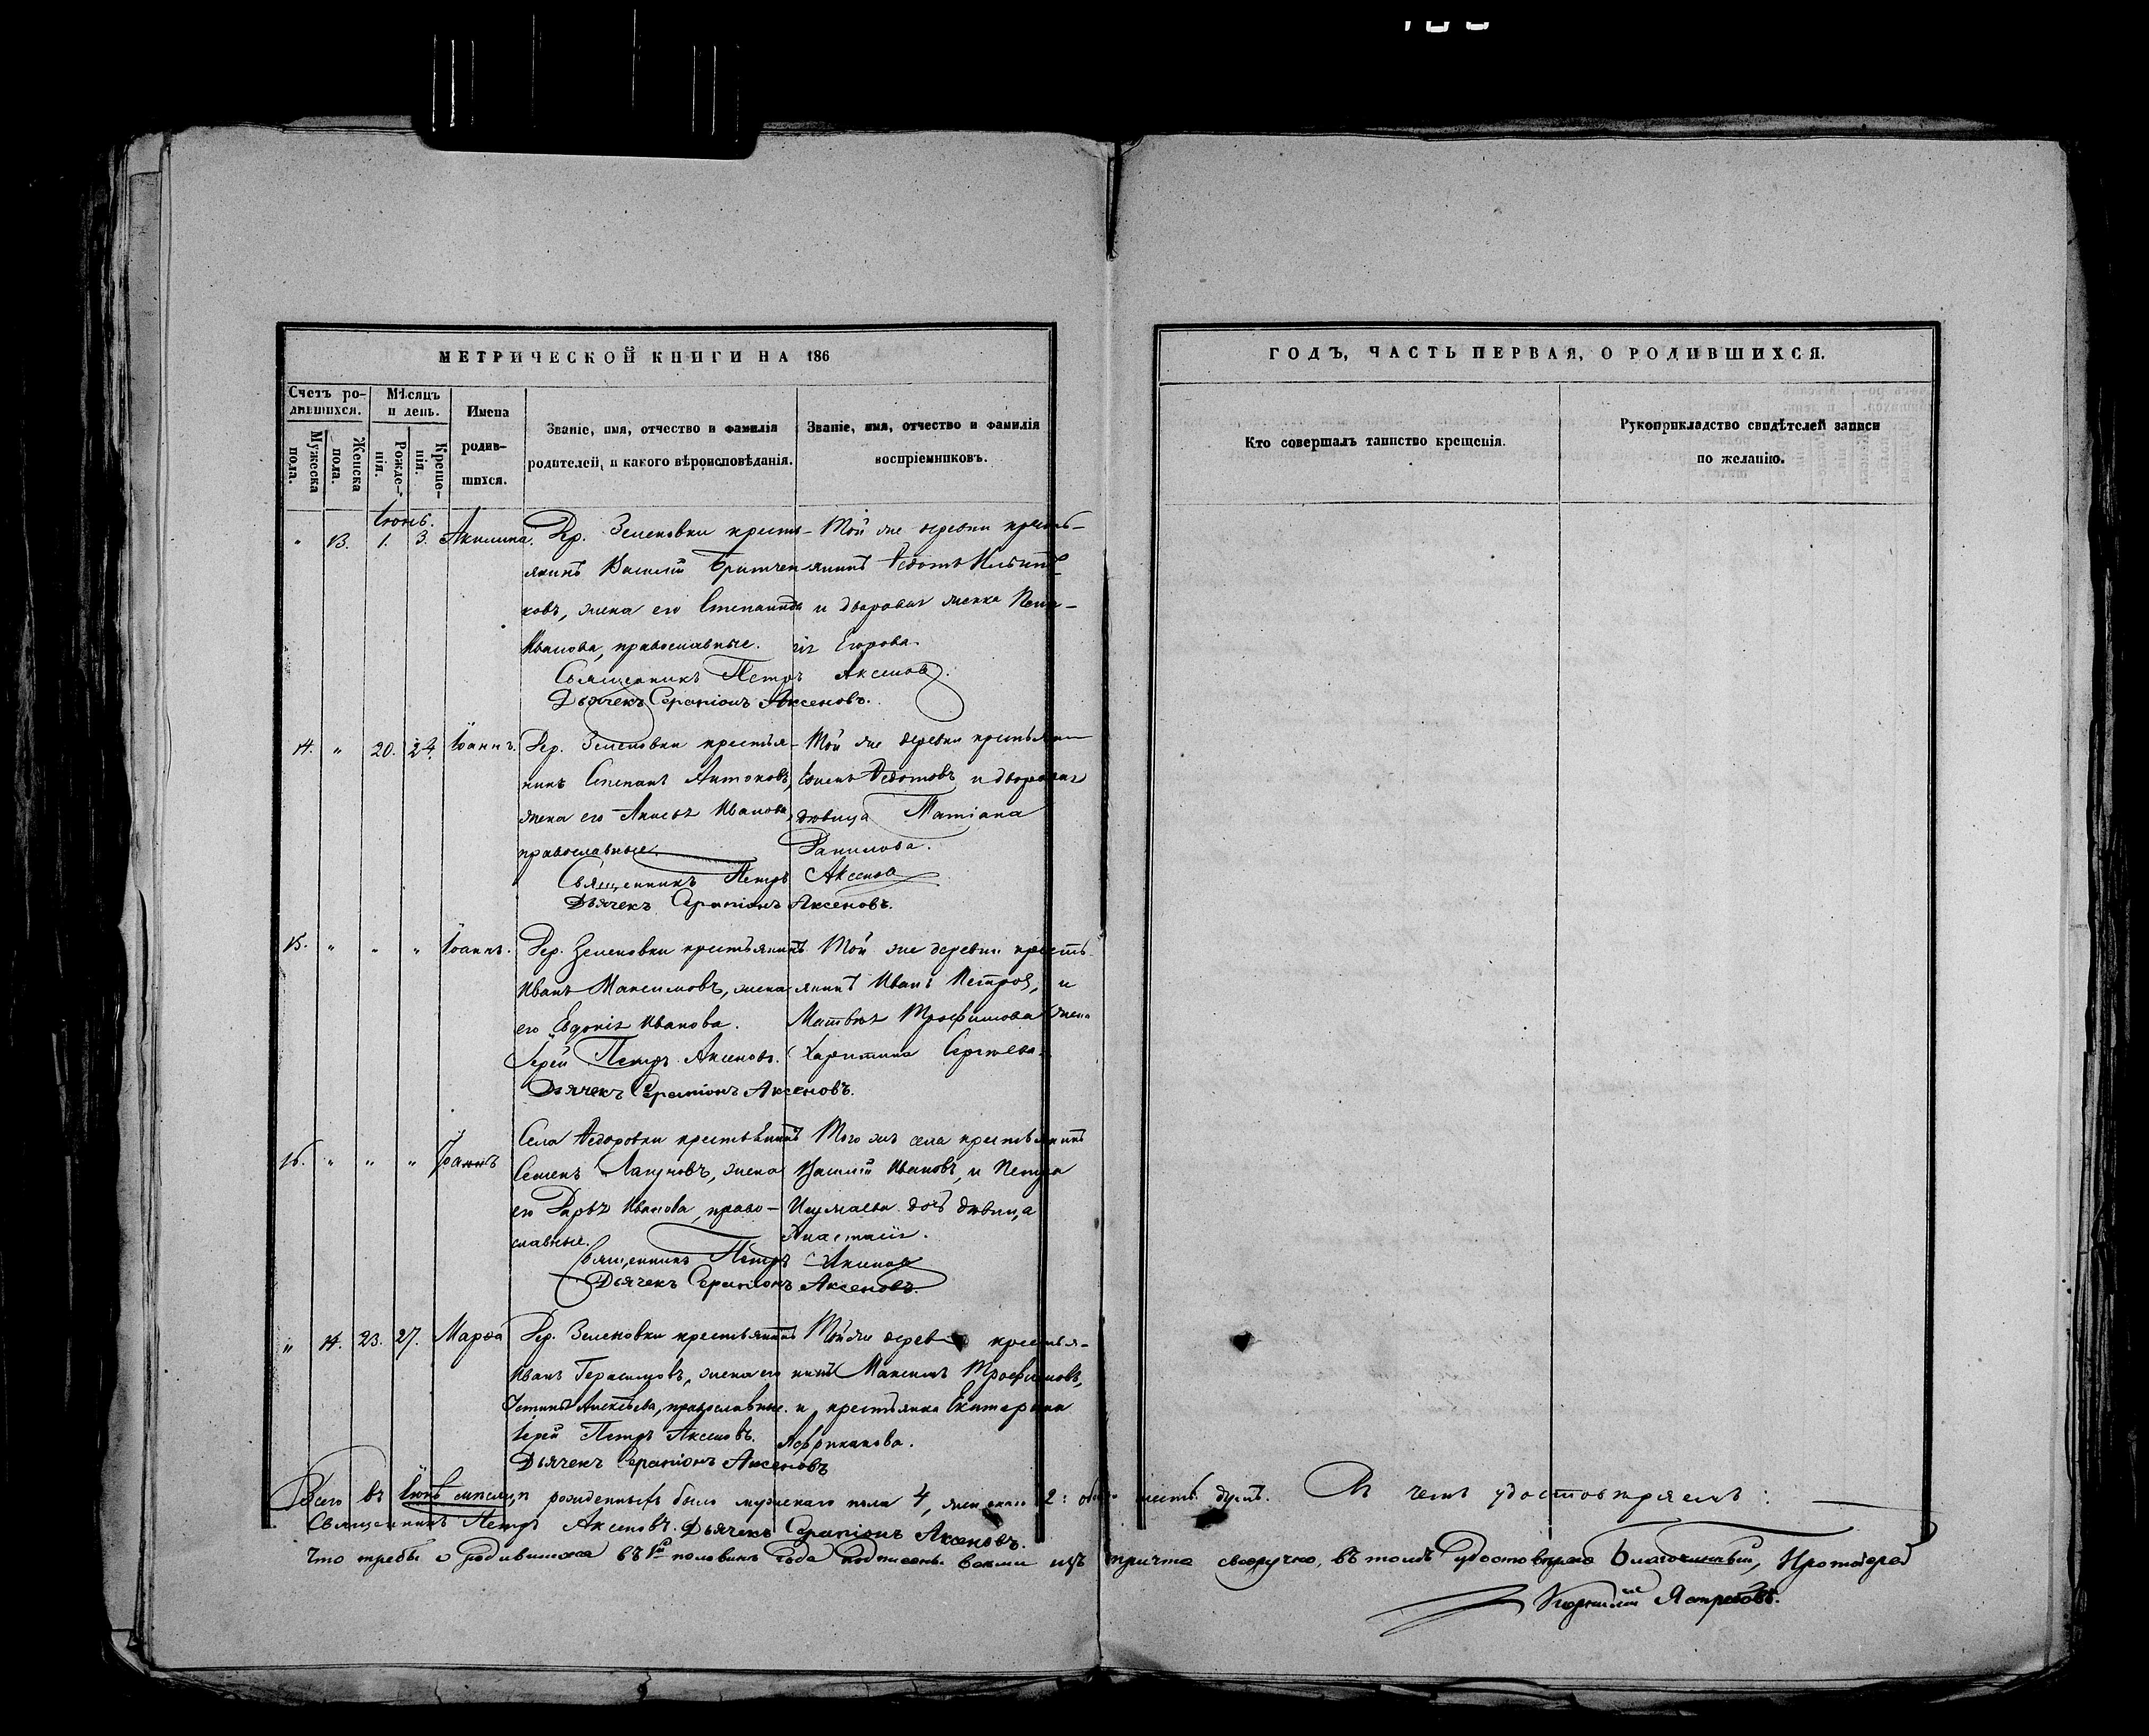 МЕТРИЧЕСКОЙ КНИГИ НА 186
ГОДЪ, ЧАСТЬ ПЕРВАЯ, О РОДИВШИХСЯ.
Счетъ ро-
дившихся.
Мужеска
пола.
Женска
пола.
Мѣсяцъ
и день.
Рожде-
нія.
Креще-
нія.
Имена
родив-
шихся.
Званіе, имя, отчество и фамилія
родителей, и какого вѣроисповѣданія.
Званіе, имя, отчество и фамилія
воспріемниковъ.
Кто совершалъ таинство крещенія.
Рукоприкладство свидѣтелей записи
по желанію.
Іюнь.
" 13. 1. 3. Акилина. Дер. Зеленовки кресть- Той же деревни кресть-
янинъ Василій янинъ Ѳедотъ
ковъ, жена его Степанида и дворовая женка
Иванова, православные. Егорова.
Священникъ Петръ Аксеновъ.
Дьячекъ Серапіонъ Аксеновъ.
14. " 20. 24. Іоаннъ. Дер. Зеленовки крестья- Той же деревни крестьянинъ
нинъ Степанъ Антоновъ, Ѳедотовъ и дворовая
жена его Иванова, дѣвица Татіана
православные. Данилова.
Священникъ Петръ Аксеновъ
Дьячекъ Серапіонъ Аксеновъ.
15. " " " Іоаннъ. Дер. Зеленовки крестьянинъ Той же деревни кресть-
Иванъ Максимовъ, жена янинъ Иванъ Петровъ, и
его Евдокія Иванова. Матвѣя Трофимова жена
Іерей Петръ Аксеновъ. Харитина Сергѣева.
Дьячекъ Серапіонъ Аксеновъ.
Села Ѳедоровки крестьянинъ Того же села крестьянинъ
16. " " " Іоаннъ Семенъ жена Василій Ивановъ, и Петра
его Дарья Иванова, право- дочь дѣвица
славные. Анастасія.
Священникъ Петръ Аксеновъ
Дьячекъ Серапіонъ Аксеновъ.
" 14. 23. 27. Марѳа Дер. Зеленовки крестьянинъ Той же деревни крестья-
Иванъ Герасимовъ, жена его нинъ Максимъ Трофимовъ,
Устинья Алексѣева, православные. и крестьянка Екатерина
Іерей Петръ Аксеновъ. Африканова.
Дьячекъ Серапіонъ Аксеновъ
Всего въ Іюнѣ мѣсяцѣ рожденныхъ было мужескаго пола 4, женскаго 2: обоего шесть душъ. Въ чемъ удостовѣряемъ:
Священникъ Петръ Аксеновъ. Дьячекъ Серапіонъ Аксеновъ.
Что требы о родившихся въ 1й половинѣ года подписаны всѣми изъ причта своеручно, въ томъ удостовѣряю Благочинный, Протоіерей
Ястребовъ.